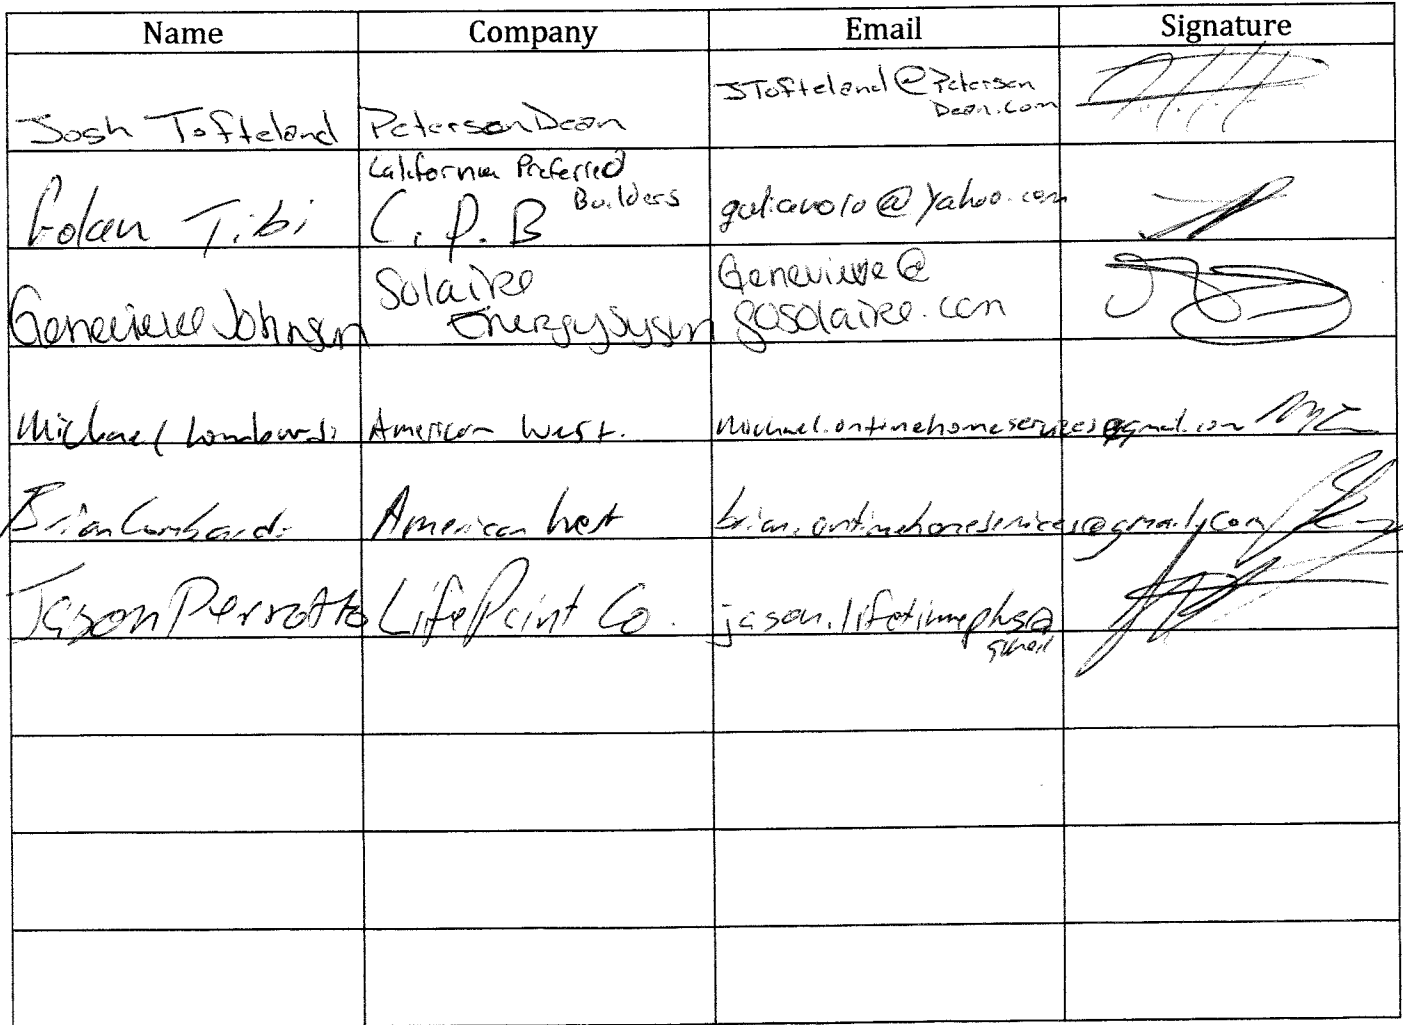 Name Company Email Signature
Josh Tofteland PetersenDean JTofteland@Petersen
Dean.com
California Preferred
Builders
Golan Tibi C.P.B @yahoo.com
Genevieve Johnson Solaire Genevieve@
Energy gosolaire.com
Michael Lombardi American West. michael.ontimehomeservices@gmail.com
Brian Lombardi American West brian.ontimehomeservices@gmail.com
Jason Perrotto LifePaint Co. jason.lifetimeplus@
gmail